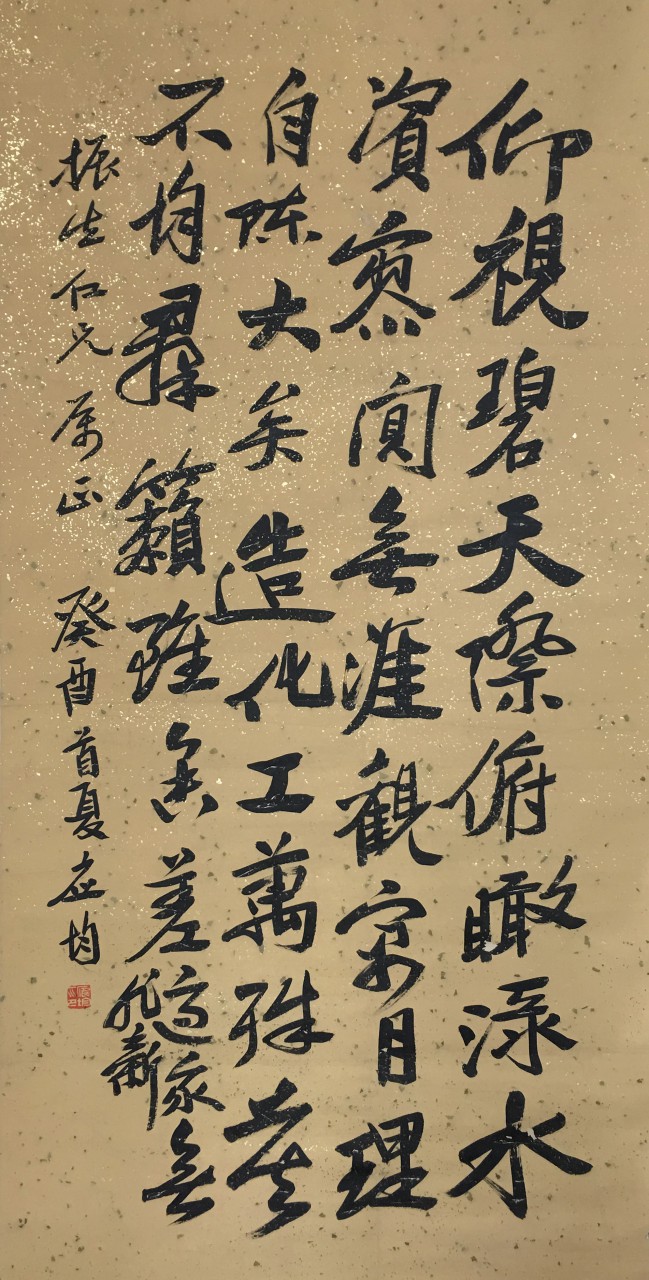 仰視碧天際俯瞰淥水
濱寥闃無涯觀寓目理
自陳大矣造化工萬殊莫
不均羣籟雖參差適我無
非新
振生仁兄屬正 癸酉首夏 应均